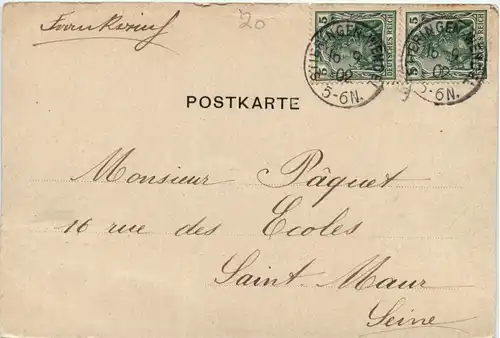 Frankreich
20
5 DEUTSCHES REICH 5
5 DEUTSCHES REICH 5
STIERINGEN-WENDEL
16 9
02
5-6N.
STIERINGEN-WENDEL
16 9
02
5-6N.
POSTKARTE
Monsieur Pâquet
16 rue des Ecoles
Saint. Maur
Seine